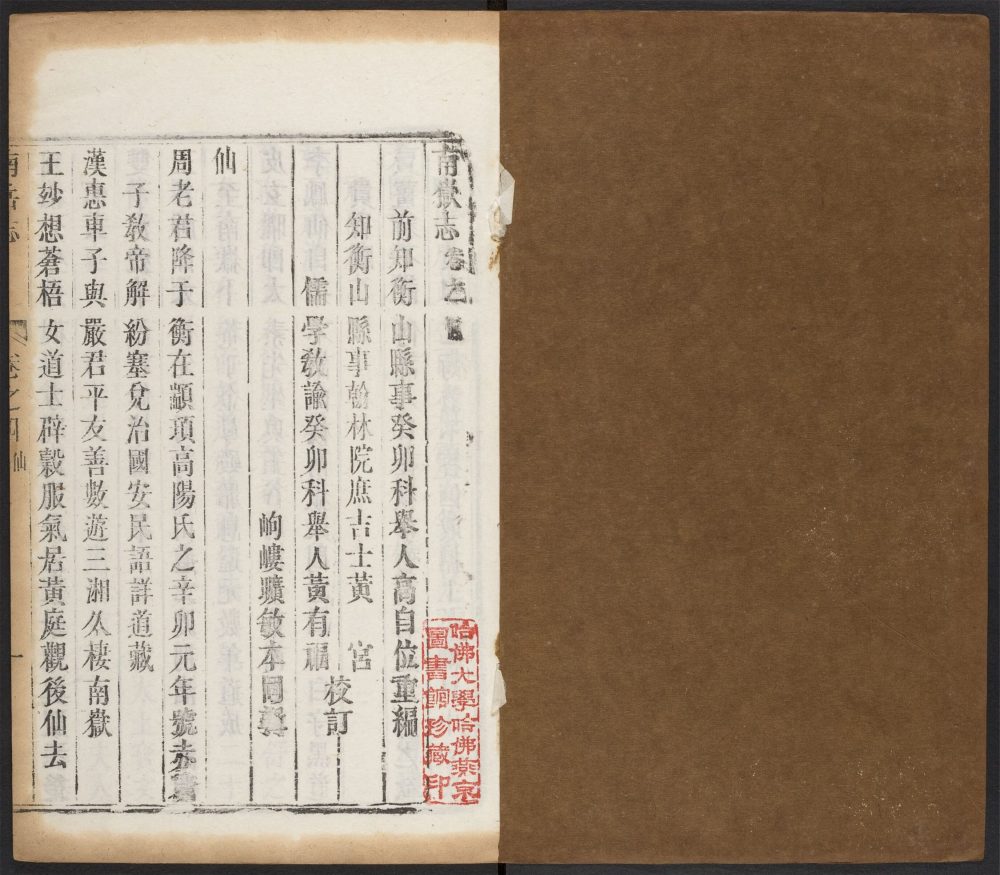 南嶽志卷之四
前知衡山縣事癸卯科舉人高自位重編
知衡山縣事翰林院庶吉士黃 宮
校訂
儒學敎諭癸卯科舉人黃有禔
岣嶁曠敏本同
仙
周老君降于衡在顓頊高陽氏之辛卯元年號赤
子敎帝解紛塞兌治國安民語詳道藏
漢惠車子與嚴君平友善數遊三湘久棲南嶽
王妙想蒼梧女道士辟穀服氣居黃庭觀後仙去
南岳志 卷之四 仙 一
哈佛大學哈佛燕京
圖書館珍藏印